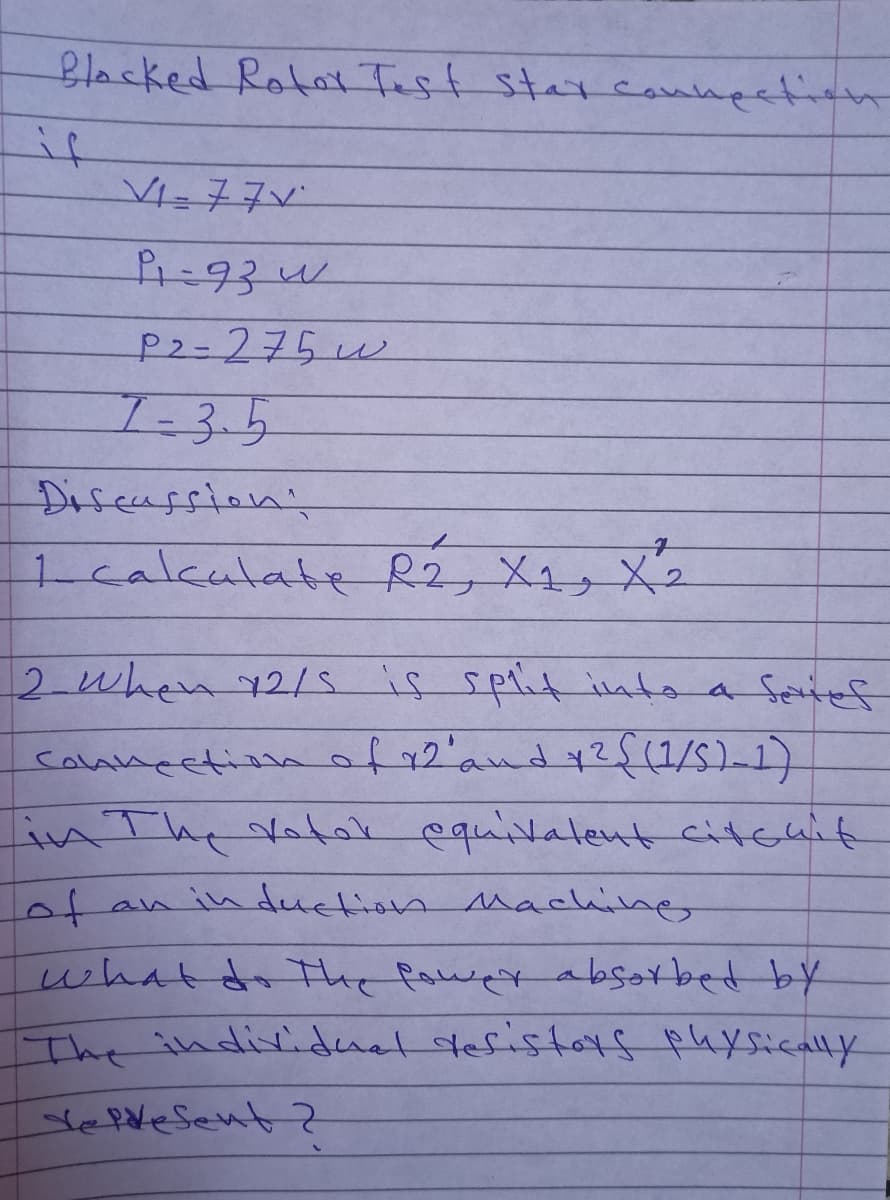 Blocked Rotor Test star connection
if
V1=77v
P1=93 w
P2=275 w
I=3.5
Discussion:
1- calculate R2́, X1, X'2
2- When r2/s is split into a series
connection of r2' and r2{(1/s)-1)
in The rotor equivalent circuit
of an induction Machine,
what do The Power absorbed by
The individual resistors physically
represent?